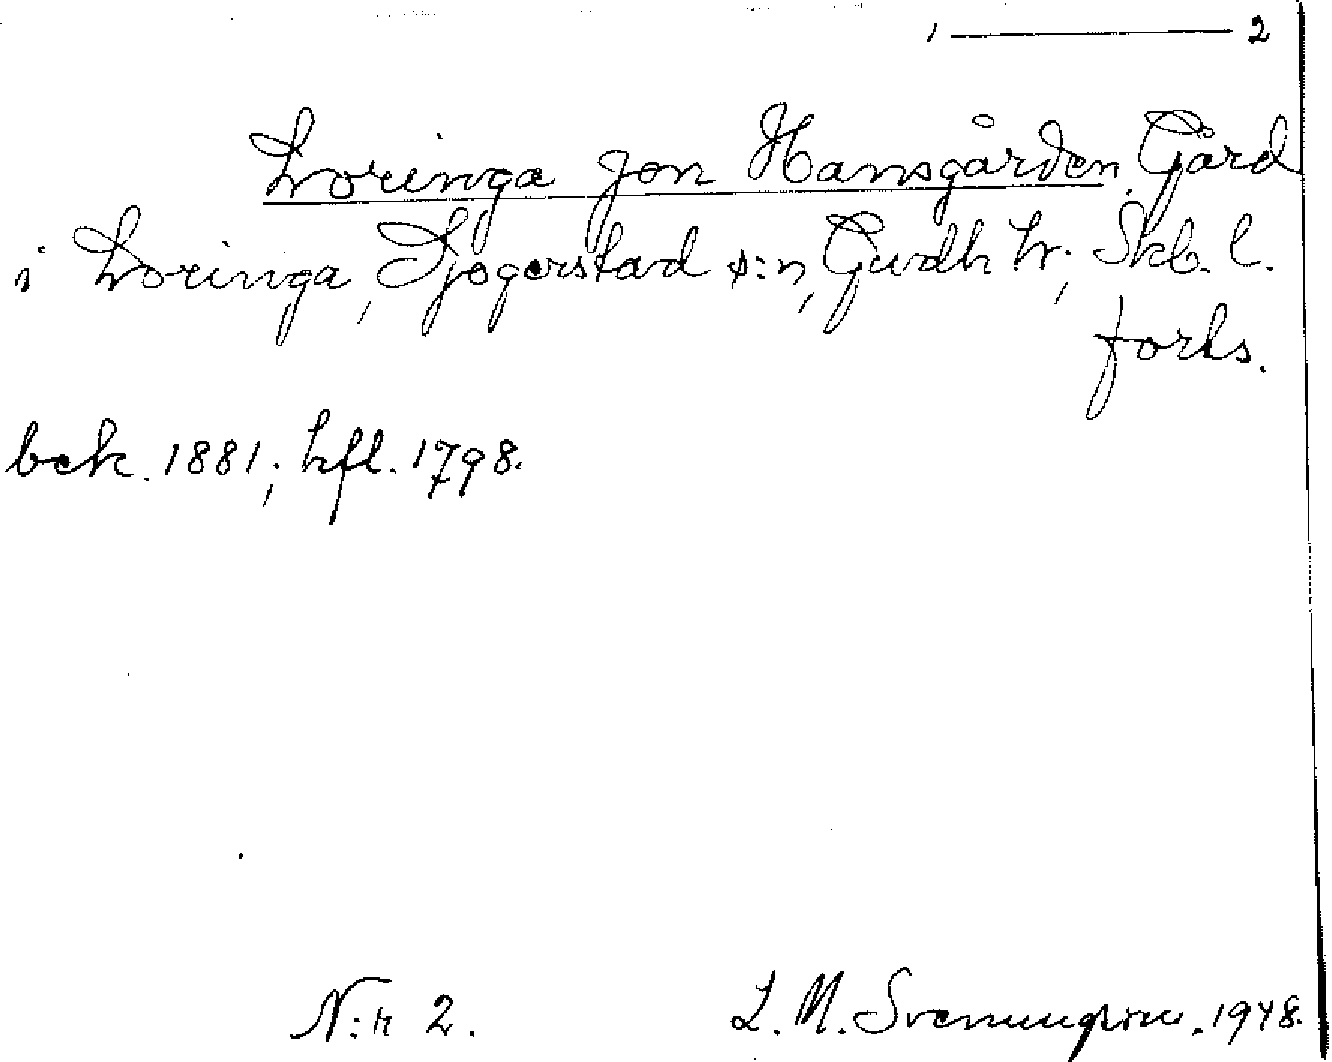 1 — 2
Loringa Jon Hansgården. Gård
i Loringa, Tjogerstad s:n, Gudh hr; Skb. l.
forts.
bek. 1881; hfl. 1798.
N:r 2. L. M. Svenungsson. 1948.